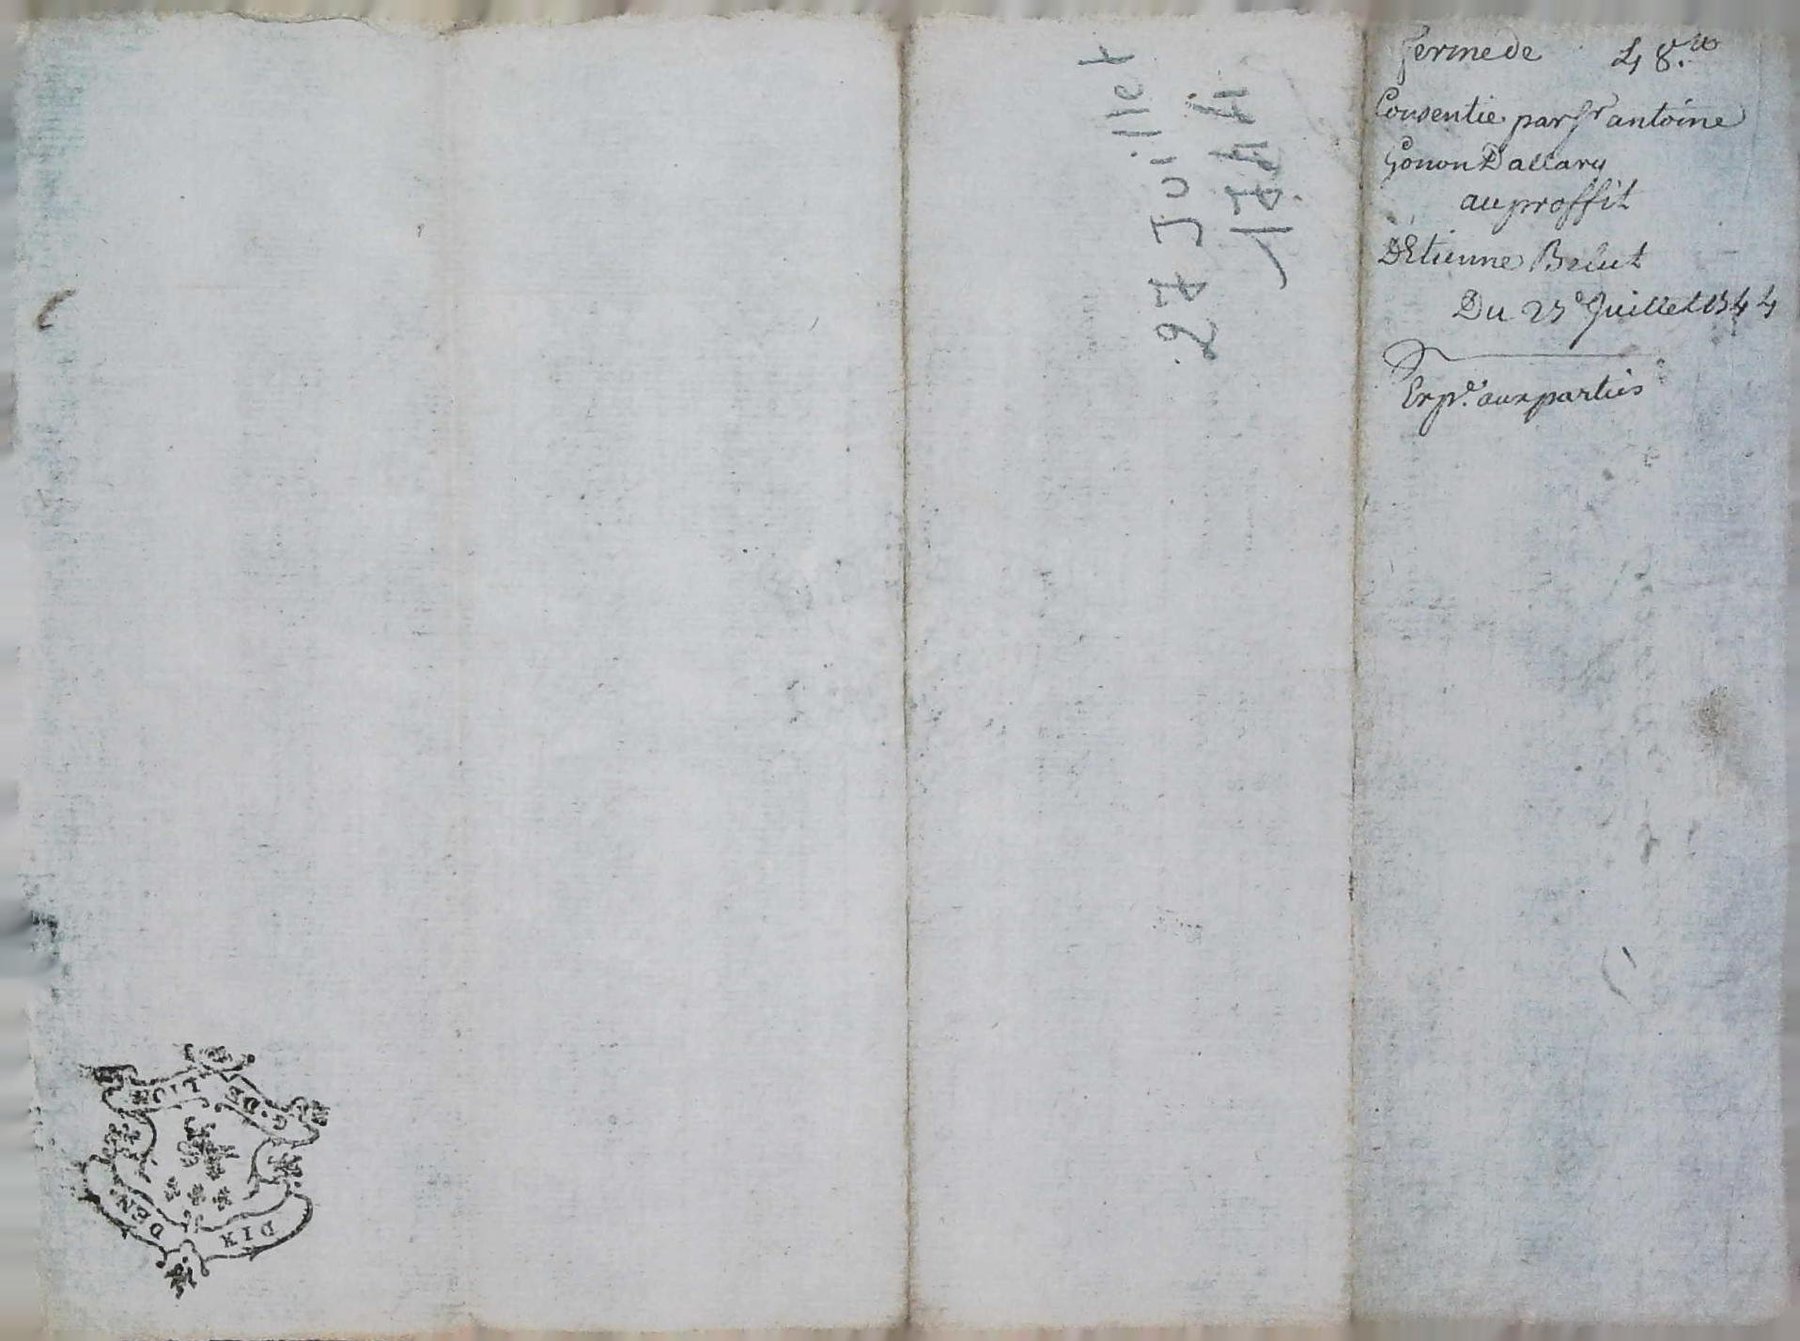 ferme de 48.tt
Consentie par Sr antoine
Gonon Dallary
au proffit
D'Etienne Brlut
Du 27e Juillet 1744
Exp.e aux parties
27 Juillet
1744
DIX DEN.